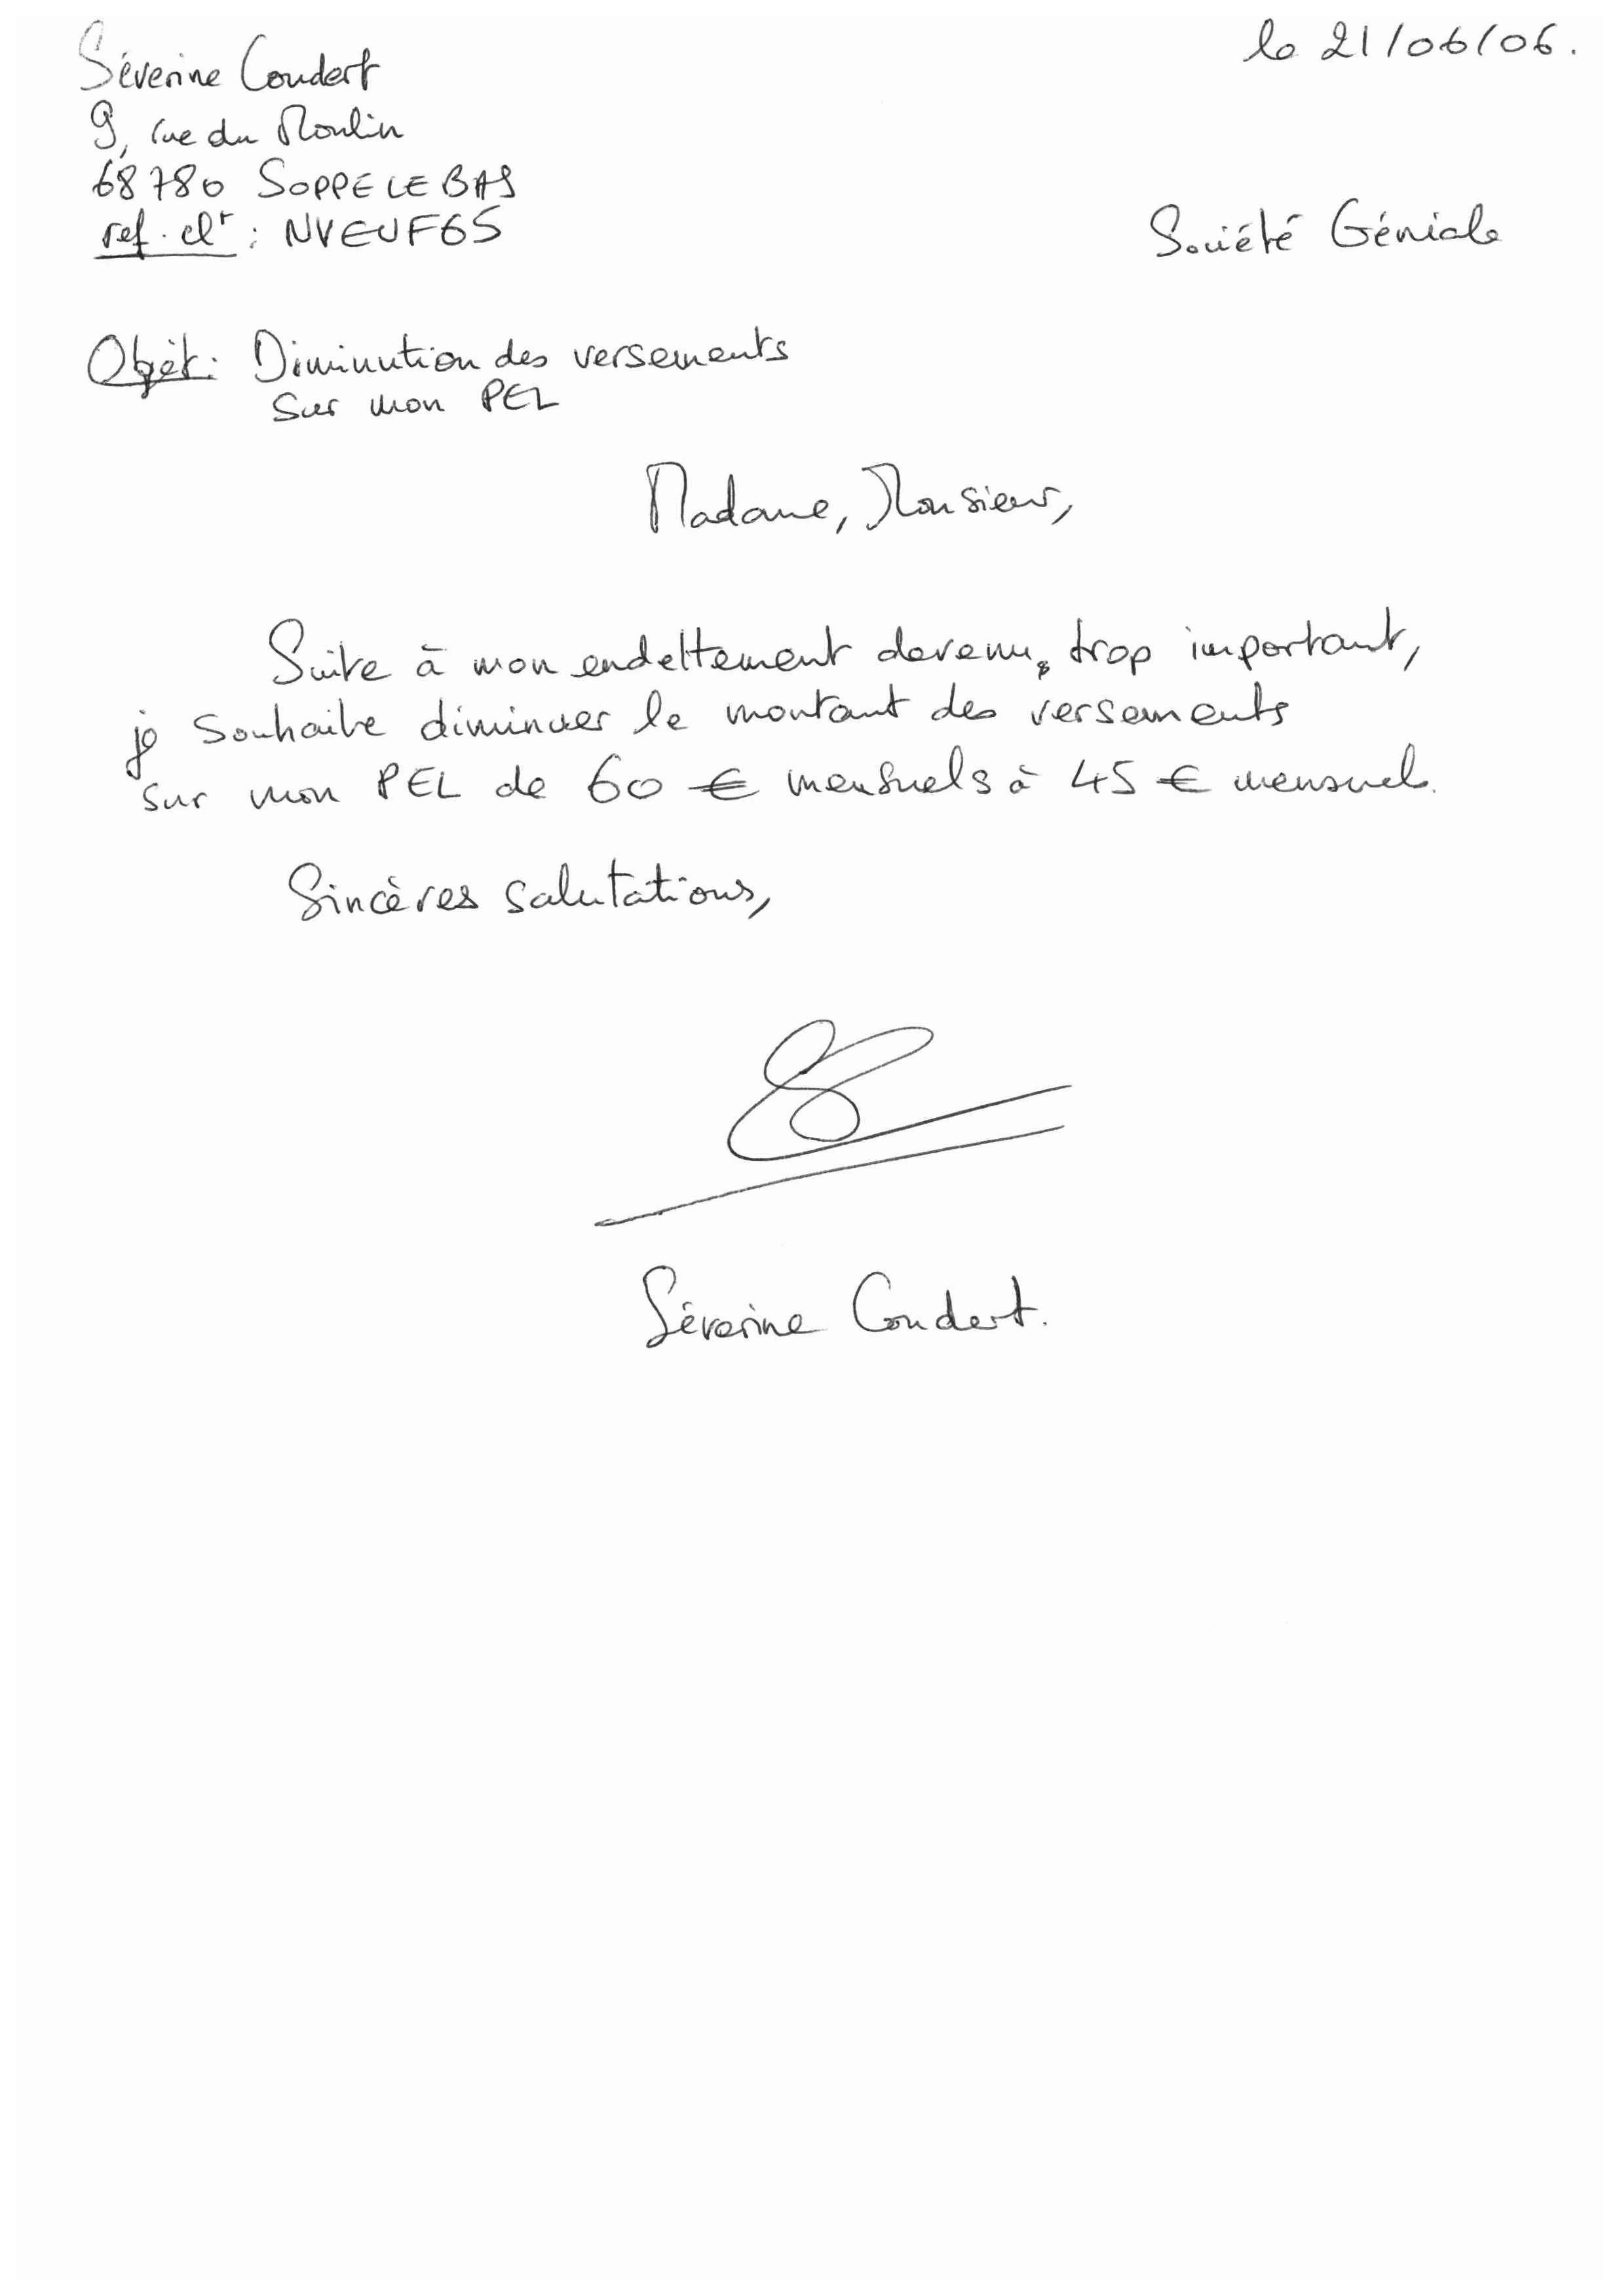 Séverine Coudert
le 21/06/06.
9, rue du Moulin
68780 SOPPE LE BAS
ref. clt : NVEUF65
Société Géniale
Objet : Diminution des versements
sur mon PEL
Madame, Monsieur,
Suite à mon endettement devenu trop important,
je souhaite diminuer le montant des versements
sur mon PEL de 60 € mensuels à 45 € mensuels.
Sincères salutations,
Séverine Coudert.